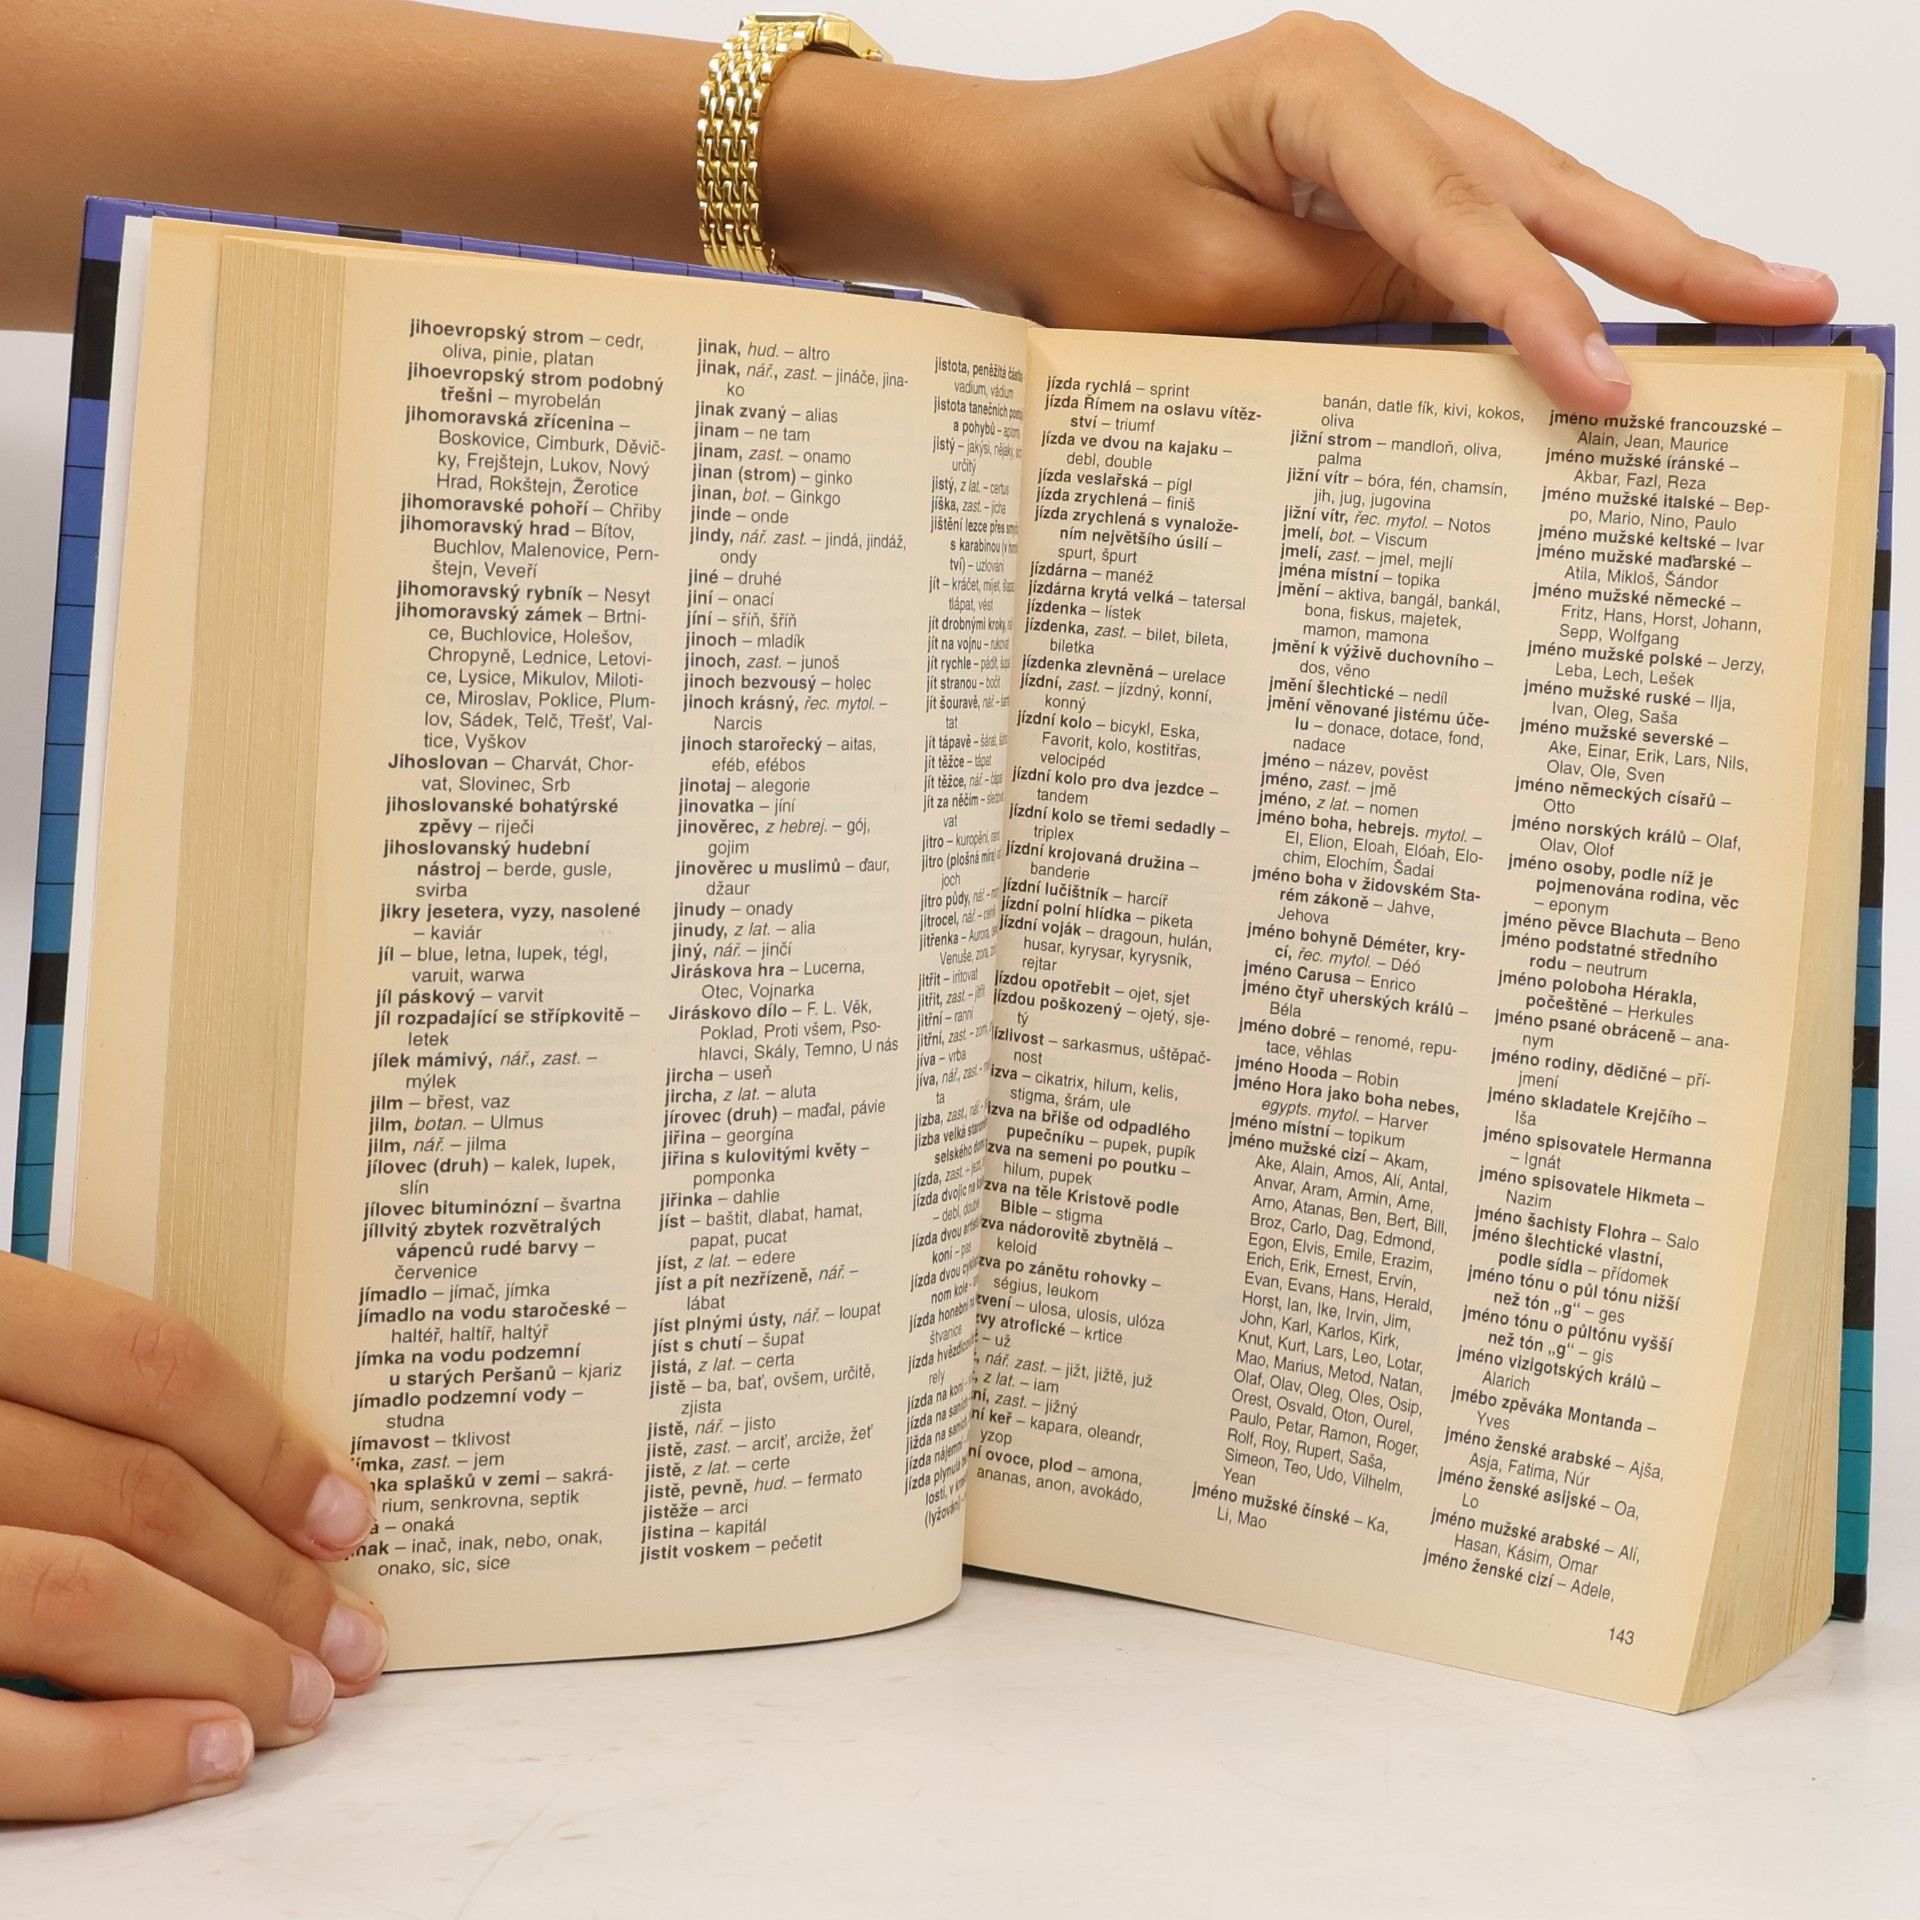 jihoevropský strom – cedr,
oliva, pinie, platan
jihoevropský strom podobný
třešni – myrobelán
jihomoravská zřícenina –
Boskovice, Cimburk, Děvič-
ky, Frejštejn, Lukov, Nový
Hrad, Rokštejn, Žerotice
jihomoravské pohoří – Chřiby
jihomoravský hrad – Bítov,
Buchlov, Malenovice, Pern-
štejn, Veveří
jihomoravský rybník – Nesyt
jihomoravský zámek – Brtni-
ce, Buchlovice, Holešov,
Chropyně, Lednice, Letovi-
ce, Lysice, Mikulov, Miloti-
ce, Miroslav, Poklice, Plum-
lov, Sádek, Telč, Třešť, Val-
tice, Vyškov
Jihoslovan – Charvát, Chor-
vat, Slovinec, Srb
jihoslovanské bohatýrské
zpěvy – riječi
jihoslovanský hudební
nástroj – berde, gusle,
svirba
jikry jesetera, vyzy, nasolené
– kaviár
jíl – blue, letna, lupek, tégl,
varuit, warwa
jíl páskový – varvit
jíl rozpadající se střípkovitě –
letek
jílek mámivý, nář., zast. –
mýlek
jilm – břest, vaz
jilm, botan. – Ulmus
jilm, nář. – jilma
jílovec (druh) – kalek, lupek,
slín
jílovec bituminózní – švartna
jíllvitý zbytek rozvětralých
vápenců rudé barvy –
červenice
jímadlo – jímač, jímka
jímadlo na vodu staročeské –
haltéř, haltíř, haltýř
jímka na vodu podzemní
u starých Peršanů – kjariz
jímadlo podzemní vody –
studna
jímavost – tklivost
jímka, zast. – jem
splašků v zemi – sakrá-
rium, senkrovna, septik
– onaká
– inač, inak, nebo, onak,
onako, sic, sice
jinak, hud. – altro
jinak, nář., zast. – jináče, jina-
ko
jinak zvaný – alias
jinam – ne tam
jinam, zast. – onamo
jinan (strom) – ginko
jinan, bot. – Ginkgo
jinde – onde
jindy, nář. zast. – jindá, jindáž,
ondy
jiné – druhé
jiní – onací
jíní – sříň, šříň
jinoch – mladík
jinoch, zast. – junoš
jinoch bezvousý – holec
jinoch krásný, řec. mytol. –
Narcis
jinoch starořecký – aitas,
eféb, efébos
jinotaj – alegorie
jinovatka – jíní
jinověrec, z hebrej. – gój,
gojim
jinověrec u muslimů – ďaur,
džaur
jinudy – onady
jinudy, z lat. – alia
jiný, nář. – jinčí
Jiráskova hra – Lucerna,
Otec, Vojnarka
Jiráskovo dílo – F. L. Věk,
Poklad, Proti všem, Pso-
hlavci, Skály, Temno, U nás
jircha – useň
jircha, z lat. – aluta
jírovec (druh) – maďal, pávie
jiřina – georgína
jiřina s kulovitými květy –
pomponka
jiřinka – dahlie
jíst – baštit, dlabat, hamat,
papat, pucat
jíst, z lat. – edere
jíst a pít nezřízeně, nář. –
lábat
jíst plnými ústy, nář. – loupat
jíst s chutí – šupat
jistá, z lat. – certa
jistě – ba, bať, ovšem, určitě,
zjista
jistě, nář. – jisto
jistě, zast. – arciť, arciže, žeť
jistě, z lat. – certe
jistě, pevně, hud. – fermato
jistěže – arci
jistina – kapitál
jistit voskem – pečetit
jistota, peněžitá
vadium, vádium
jistota tanečních
a pohybů –
jistý – jakýsi, nějaký,
určitý
jistý, z lat. – certus
jíška, zast. – jícha
jištění lezce přes
s karabinou (v
tví) – uzlování
jít – kráčet, míjet,
tlápat, vést
jít drobnými kroky,
jít na vojnu –
jít rychle – pádit,
jít stranou – bočit
jít šouravě, nář. –
tat
jít tápavě – šárat,
jít těžce – tápat
jít těžce, nář. –
jít za něčím –
vat
jitro – kuropění,
jitro (plošná míra)
joch
jitro půdy, nář. –
jitrocel, nář. –
jitřenka – Aurora,
Venuše, zora,
jitřit – iritovat
jitřit, zast. – jířit
jitřní – ranní
jitřní, zast. –
jíva – vrba
jíva, nář., zast. –
ta
jizba, zast., nář. –
jizba velká
selského
jízda, zast. –
jízda dvojic na
– debl, double
jízda dvou
koní – pas
jízda dvou
nom kole –
jízda honební
štvanice
jízda
rely
jízda na koni –
jízda na saních
jižda na saních
jízda nájemní –
jízda plynulá
losti, v
(lyžování)
jízda rychlá – sprint
jízda Římem na oslavu vítěz-
ství – triumf
jízda ve dvou na kajaku –
debl, double
jízda veslařská – pígl
jízda zrychlená – finiš
jízda zrychlená s vynalože-
ním největšího úsilí –
spurt, špurt
jízdárna – manéž
jízdárna krytá velká – tatersal
jízdenka – lístek
jízdenka, zast. – bilet, bileta,
biletka
jízdenka zlevněná – urelace
jízdní, zast. – jízdný, konní,
konný
jízdní kolo – bicykl, Eska,
Favorit, kolo, kostitřas,
velocipéd
jízdní kolo pro dva jezdce –
tandem
jízdní kolo se třemi sedadly –
triplex
jízdní krojovaná družina –
banderie
jízdní lučištník – harcíř
jízdní polní hlídka – piketa
jízdní voják – dragoun, hulán,
husar, kyrysar, kyrysník,
rejtar
jízdou opotřebit – ojet, sjet
jízdou poškozený – ojetý, sje-
tý
jízlivost – sarkasmus, uštěpač-
nost
– cikatrix, hilum, kelis,
stigma, šrám, ule
na břiše od odpadlého
pupečníku – pupek, pupík
na semeni po poutku –
hilum, pupek
na těle Kristově podle
Bible – stigma
nádorovitě zbytnělá –
keloid
po zánětu rohovky –
ségius, leukom
– ulosa, ulosis, ulóza
atrofické – krtice
– už
nář. zast. – jižt, jižtě, juž
z lat. – iam
zast. – jižný
keř – kapara, oleandr,
yzop
ovoce, plod – amona,
ananas, anon, avokádo,
banán, datle fík, kivi, kokos,
oliva
jižní strom – mandloň, oliva,
palma
jižní vítr – bóra, fén, chamsín,
jih, jug, jugovina
jižní vítr, řec. mytol. – Notos
jmelí, bot. – Viscum
jmelí, zast. – jmel, mejlí
jména místní – topika
jmění – aktiva, bangál, bankál,
bona, fiskus, majetek,
mamon, mamona
jmění k výživě duchovního –
dos, věno
jmění šlechtické – nedíl
jmění věnované jistému úče-
lu – donace, dotace, fond,
nadace
jméno – název, pověst
jméno, zast. – jmě
jméno, z lat. – nomen
jméno boha, hebrejs. mytol. –
El, Elion, Eloah, Elóah, Elo-
chim, Elochím, Šadai
jméno boha v židovském Sta-
rém zákoně – Jahve,
Jehova
jméno bohyně Déméter, kry-
cí, řec. mytol. – Déó
jméno Carusa – Enrico
jméno čtyř uherských králů –
Béla
jméno dobré – renomé, repu-
tace, věhlas
jméno Hooda – Robin
jméno Hora jako boha nebes,
egypts. mytol. – Harver
jméno místní – topikum
jméno mužské cizí – Akam,
Ake, Alain, Amos, Alí, Antal,
Anvar, Aram, Armin, Arne,
Arno, Atanas, Ben, Bert, Bill,
Broz, Carlo, Dag, Edmond,
Egon, Elvis, Emile, Erazim,
Erich, Erik, Ernest, Ervín,
Evan, Evans, Hans, Herald,
Horst, Ian, Ike, Irvin, Jim,
John, Karl, Karlos, Kirk,
Knut, Kurt, Lars, Leo, Lotar,
Mao, Marius, Metod, Natan,
Olaf, Olav, Oleg, Oles, Osip,
Orest, Osvald, Oton, Ourel,
Paulo, Petar, Ramon, Roger,
Rolf, Roy, Rupert, Saša,
Simeon, Teo, Udo, Vilhelm,
Yean
jméno mužské čínské – Ka,
Li, Mao
jméno mužské francouzské –
Alain, Jean, Maurice
jméno mužské íránské –
Akbar, Fazl, Reza
jméno mužské italské – Bep-
po, Mario, Nino, Paulo
jméno mužské keltské – Ivar
jméno mužské maďarské –
Atila, Mikloš, Šándor
jméno mužské německé –
Fritz, Hans, Horst, Johann,
Sepp, Wolfgang
jméno mužské polské – Jerzy,
Leba, Lech, Lešek
jméno mužské ruské – Ilja,
Ivan, Oleg, Saša
jméno mužské severské –
Ake, Einar, Erik, Lars, Nils,
Olav, Ole, Sven
jméno německých císařů –
Otto
jméno norských králů – Olaf,
Olav, Olof
jméno osoby, podle níž je
pojmenována rodina, věc
– eponym
jméno pěvce Blachuta – Beno
jméno podstatné středního
rodu – neutrum
jméno poloboha Hérakla,
počeštěné – Herkules
jméno psané obráceně – ana-
nym
jméno rodiny, dědičné – pří-
jmení
jméno skladatele Krejčího –
Iša
jméno spisovatele Hermanna
– Ignát
jméno spisovatele Hikmeta –
Nazim
jméno šachisty Flohra – Salo
jméno šlechtické vlastní,
podle sídla – přídomek
jméno tónu o půl tónu nižší
než tón „g“ – ges
jméno tónu o půltónu vyšší
než tón „g“ – gis
jméno vizigotských králů –
Alarich
jmébo zpěváka Montanda –
Yves
jméno ženské arabské – Ajša,
Asja, Fatima, Núr
jméno ženské asijské – Oa,
Lo
jméno mužské arabské – Alí,
Hasan, Kásim, Omar
jméno ženské cizí – Adele,
143